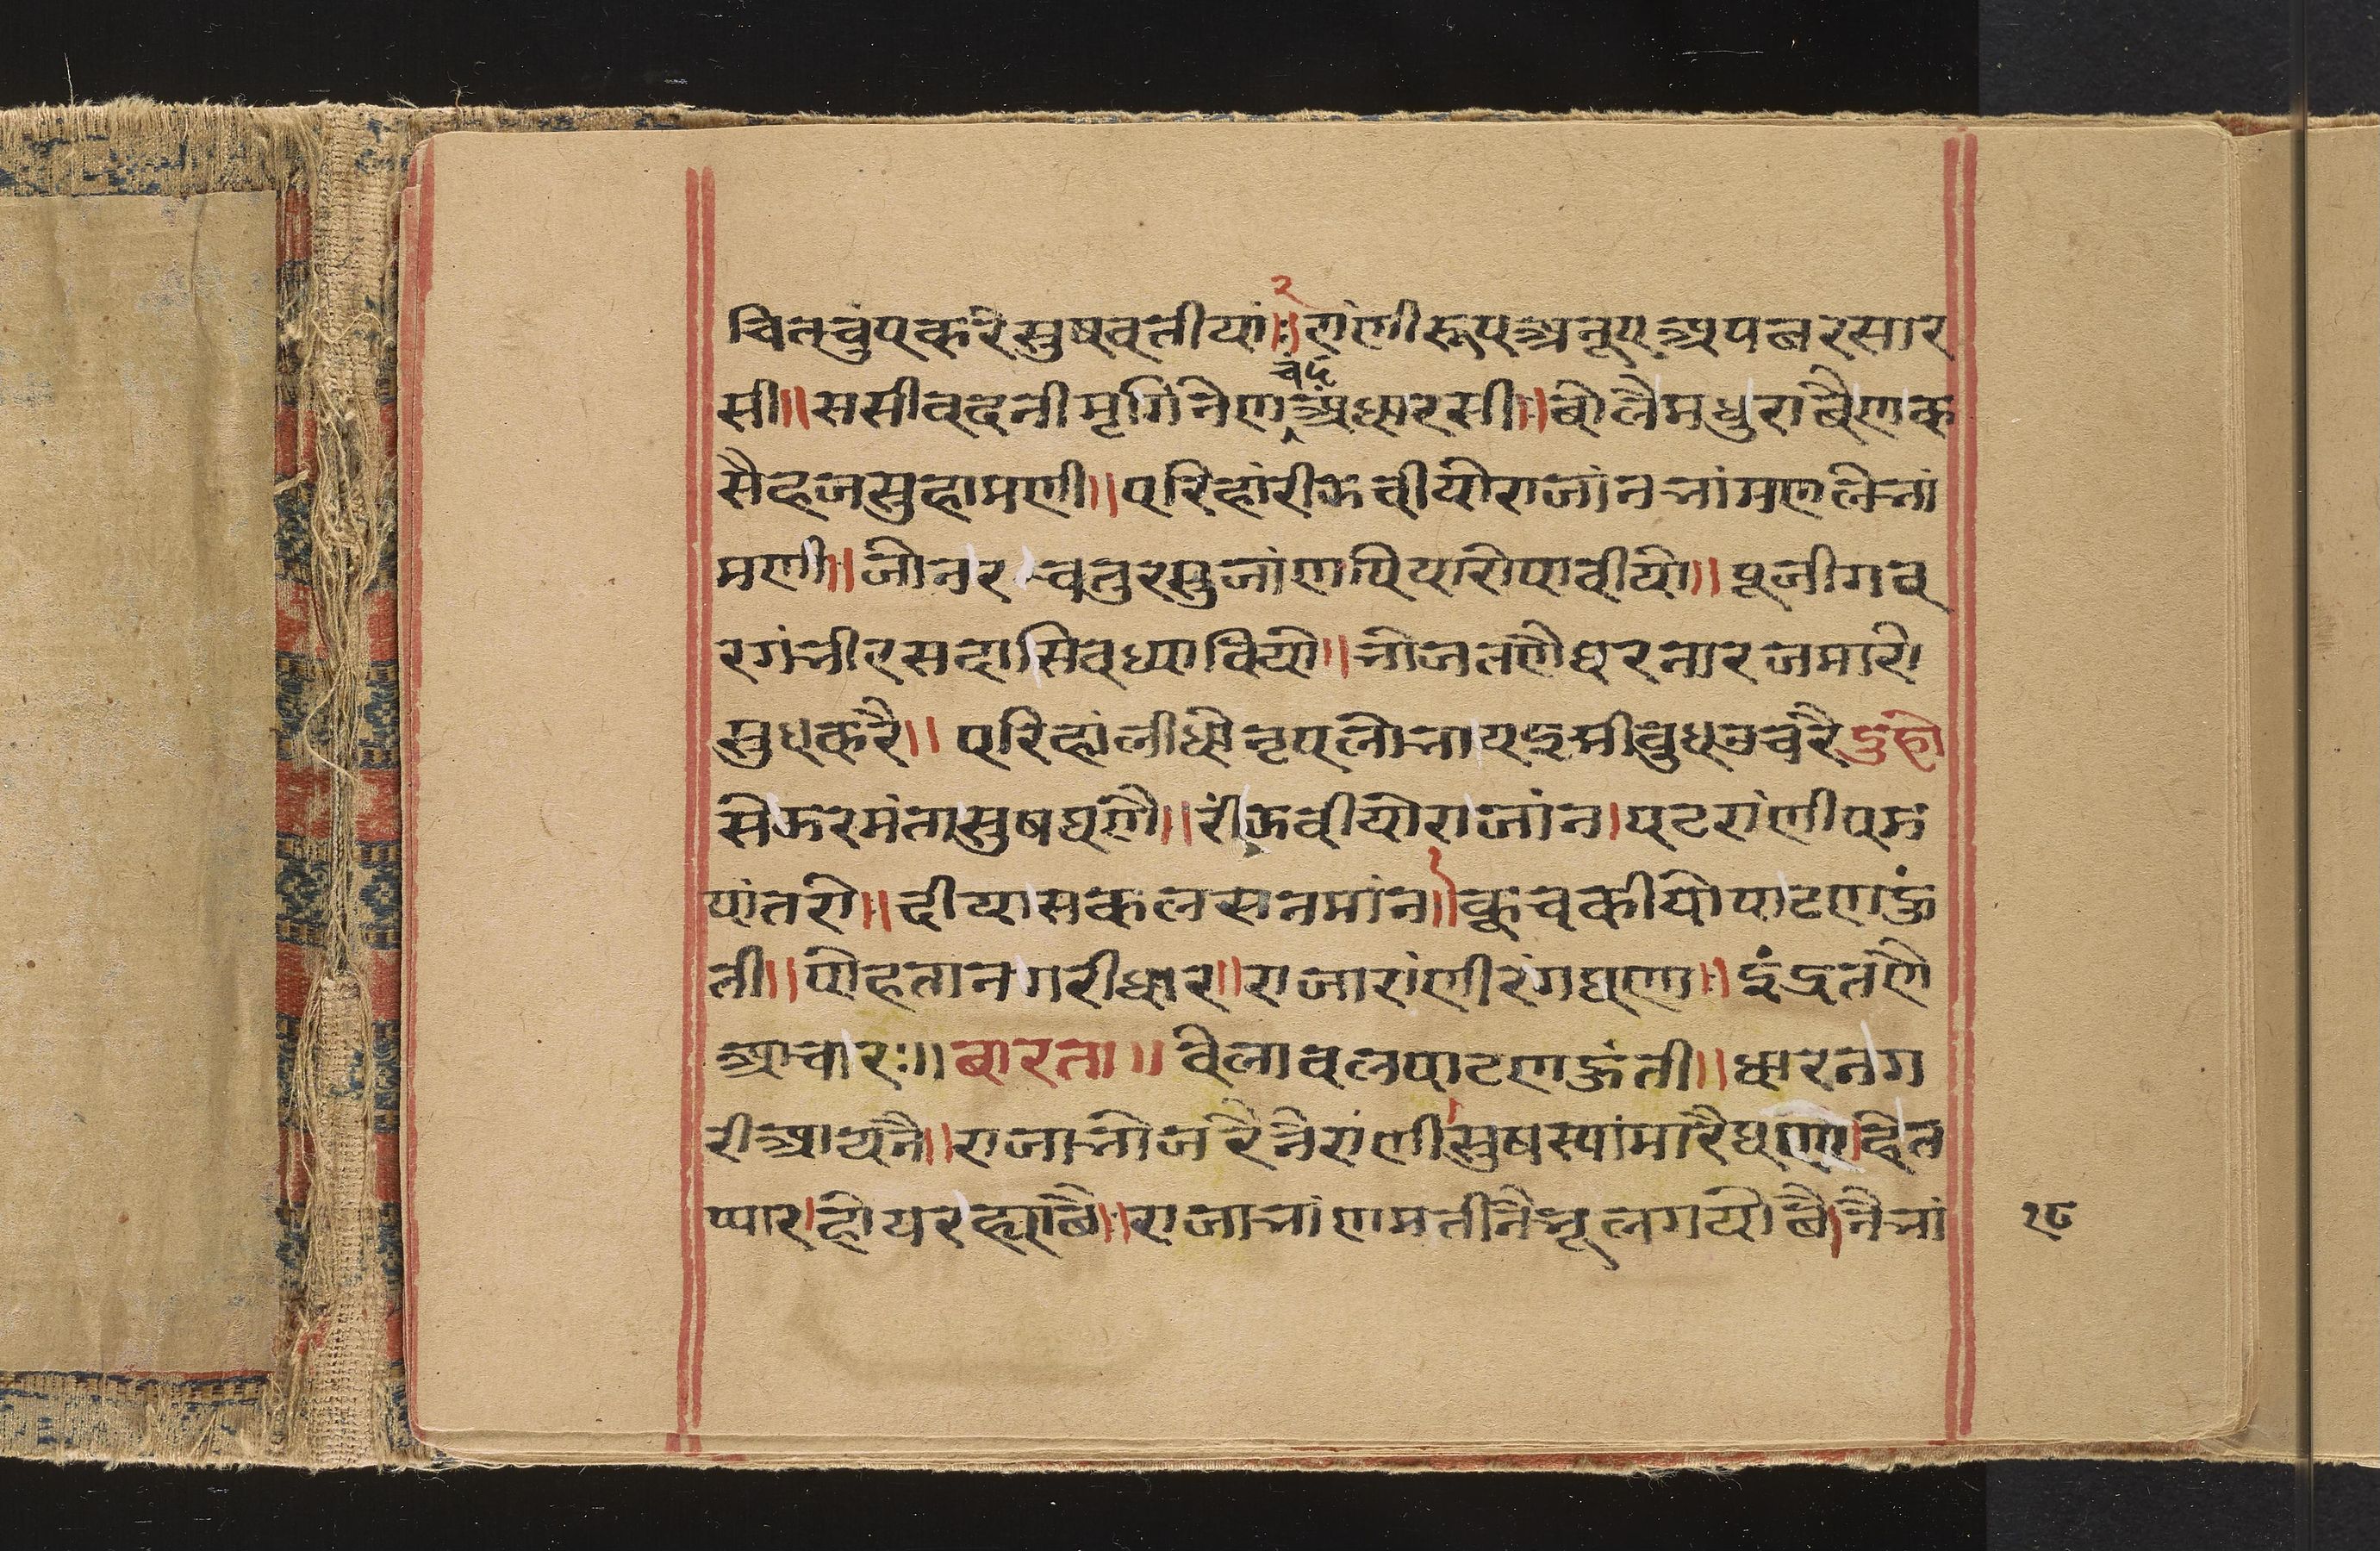 २
चितचुंपकरेसुषवतीयां॥रांणीरूपअनूपअपबरसार
चंद
सी॥ससीवदनीमृगिनेणअधारसी॥बोलैमधुराबैणक
सैहजसुहामणी॥परिहांरीऊवीयोराजांनभांमणलेभां
मणी॥जोनरचतुरसुजांणपियारोपावीयो॥पूजीगव
रगंभीरसदासिवध्यावियो॥भोजतणैघरनारजमारो
सुधकरै॥परिहांलीधोनृपलोभायइमीबुधऊचरै दुहो
सेऊरमंतासुषघणै॥रीऊवीयोराजांन।पटरांणीपम
यांतरो॥दीयासकलसनमांन॥कूचकीयोपाटणऊं
ती॥पोहतानगरीधार॥राजारांणीरंगघणा॥इंद्रतणै
आचारः॥बारता॥वेलावलपाटणऊंती॥धारनग
रीआयनै॥राजाभोजरैनैरांणीसुषस्पांमारैघणोहेत
प्यारहोयरह्योबै॥राजाभांणमतीनैभूलगयोबै।नैभां
१८